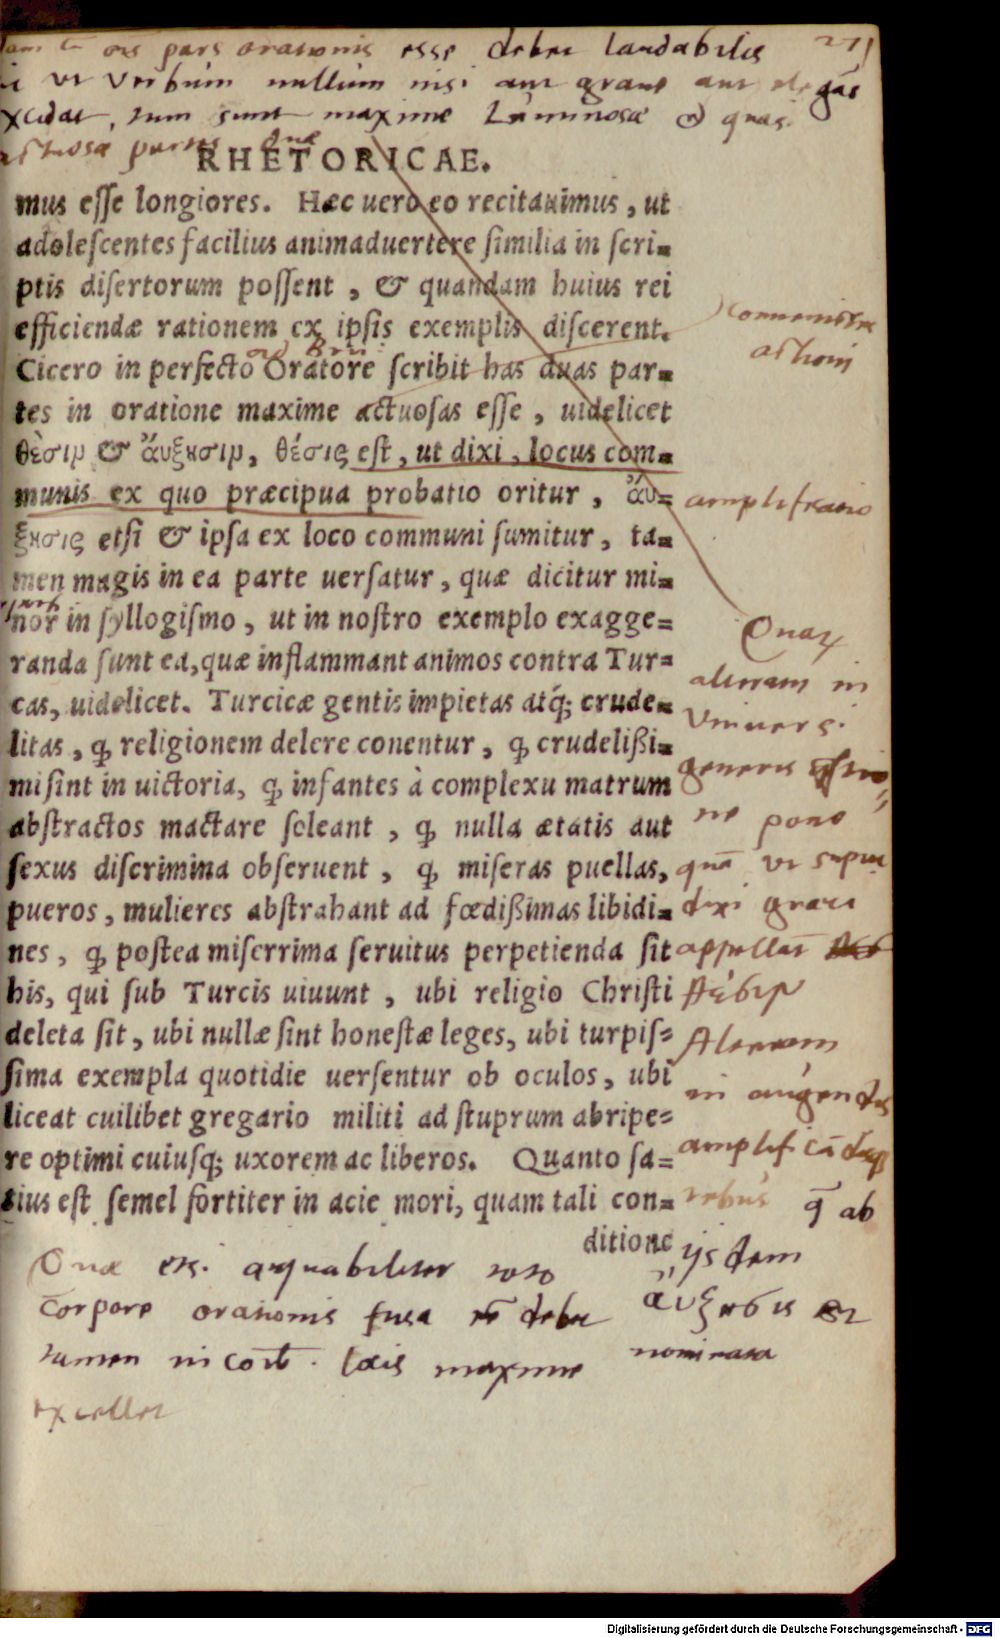 oīs pars orationis esse debet laudabilis 271
ut verbum nullum nisi aut grave aut elegās
excidat, tum sunt maxime luminosæ & quasi
actuosæ partes duæ
RHETORICAE.
mus eſſe longiores. Hæc uero eo recitauimus, ut
adoleſcentes facilius animaduertere ſimilia in ſcri=
ptis diſertorum poſſent, & quandam huius rei
efficiendæ rationem ex ipſis exemplis diſcerent.
ad Bru:
Cicero in perfecto Oratore ſcribit has duas par=
tes in oratione maxime actuoſas eſſe, uidelicet
θέσιν & ἄυξησιν, θέσις eſt, ut dixi, locus com=
munis ex quo præcipua probatio oritur, ἄυ=
ξησις etſi & ipſa ex loco communi ſumitur, ta=
men magis in ea parte uerſatur, quæ dicitur mi=
nor in ſyllogiſmo, ut in noſtro exemplo exagge=
randa ſunt ea, quæ inflammant animos contra Tur=
cas, uidelicet. Turcicæ gentis impietas atq́; crude=
litas, q̄ religionem delere conentur, q̄ crudelißi=
mi ſint in uictoria, q̄ infantes à complexu matrum
abſtractos mactare ſoleant, q̄ nulla ætatis aut
ſexus diſcrimina obſeruent, q̄ miſeras puellas,
pueros, mulieres abſtrahant ad fœdißimas libidi=
nes, q̄ poſtea miſerrima ſeruitus perpetienda ſit
his, qui ſub Turcis uiuunt, ubi religio Chriſti
deleta ſit, ubi nullæ ſint honeſtæ leges, ubi turpiſ=
ſima exempla quotidie uerſentur ob oculos, ubi
liceat cuilibet gregario militi ad ſtuprum abripe=
re optimi cuiuſq; uxorem ac liberos. Quanto ſa=
tius eſt ſemel fortiter in acie mori, quam tali con=
ditione
amplificatio
Quarū
alteram in
universi
generis q̄stio
ne pono
quā ut supra
dixi græci
appellāt
θέσιν
Alteram
in augendis
amplificādisq̄
rebus q̄ ab
ijsdem
ἄυξησις est
nominata
Quæ etsi æquabiliter toto
corpore orationis fusa eē debet
tamen in cōīb. locis maxime
excellet
Digitalisierung gefördert durch die Deutsche Forschungsgemeinschaft - DFG